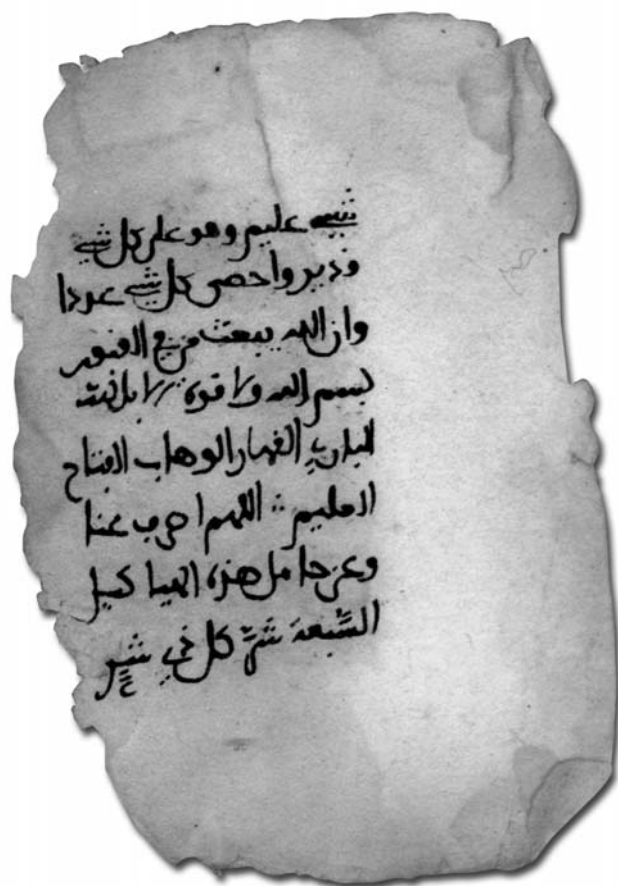 شيء عليم وهو على كل شيء
قدير واحصى كل شيء عددا
وان الله يبعث من في القبور
بسم الله ولا قوة الا بالله
البارئ القهار الوهاب الفتاح
العليم ؞ اللهم اصرف عنا
وعن حامل هذه الهياكيل
السبعة شر كل ذي شر